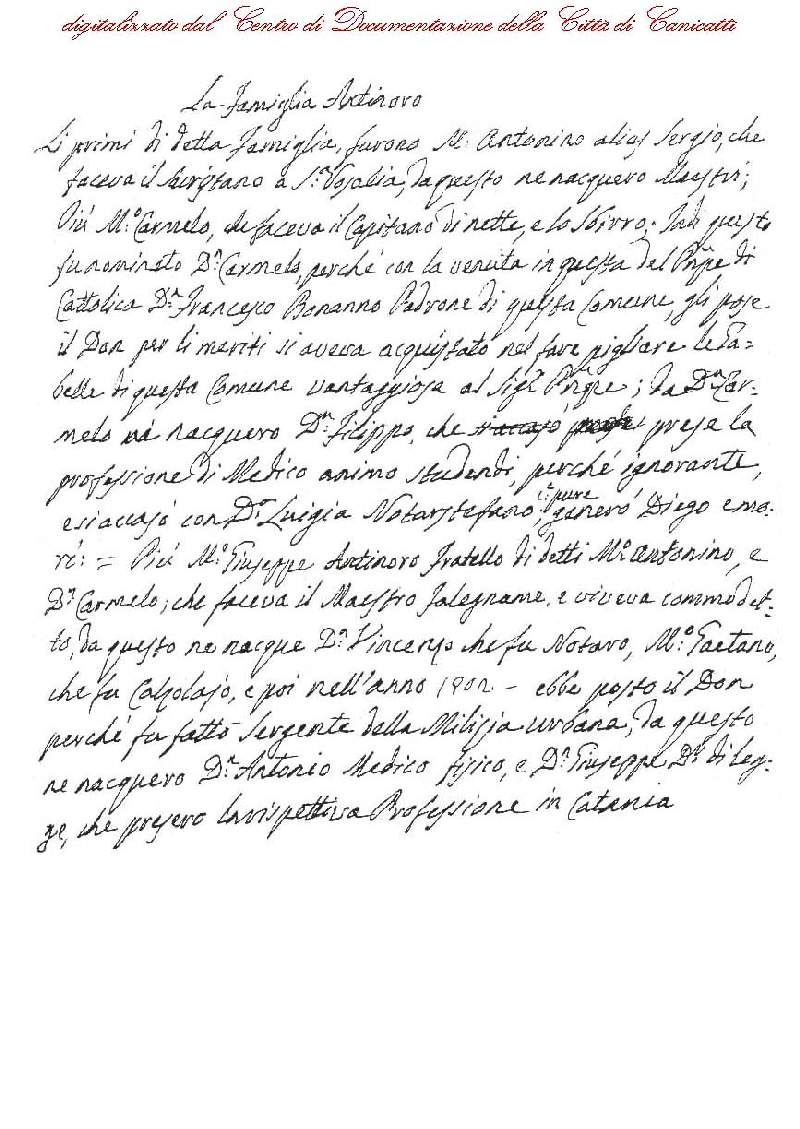 digitalizzato dal Centro di Documentazione della Città di Canicattì
La Famiglia Antinoro
Li primi di detta Famiglia, furono M.º Antonino alias Sergio, che
faceva il Sacristano a S.ª Rosalia, da questo ne nacquero Maestri;
Più M.º Carmelo, che faceva il Capitano di notte, e lo Sbirro; questo
fu nominato D.n Carmelo, perché con la venuta in questa del Pñpe di
Cattolica D.n Francesco Bonanno Padrone di questa Comune, gli pose
il Don per li meriti si aveva acquistato nel fare pigliare le Ga=
belle di questa Comune vantaggiosa al Sig.r Pñpe; da D.n Car-
melo nacquero D.n Filippo, che prese la
professione di Medico animo studendi, perché ignorante,
e si accasò con D.a Luigia Notarstefano, e pure generò Diego e mo-
rì: = Più M.º Giuseppe Antinoro Fratello di detti M.º Antonino, e
D.n Carmelo; che faceva il Maestro Falegname, e viveva commodet-
to, da questo ne nacque D.n Vincenzo che fu Notaro, M.º Gaetano,
che fu Calzolajo, e poi nell'anno – ebbe posto il Don
perché fu fatto Sergente della Milizia urbana; da questo
ne nacquero D.n Antonio Medico fisico, e D.n Giuseppe D.r di Leg-
ge, che presero la rispettiva Professione in Catania